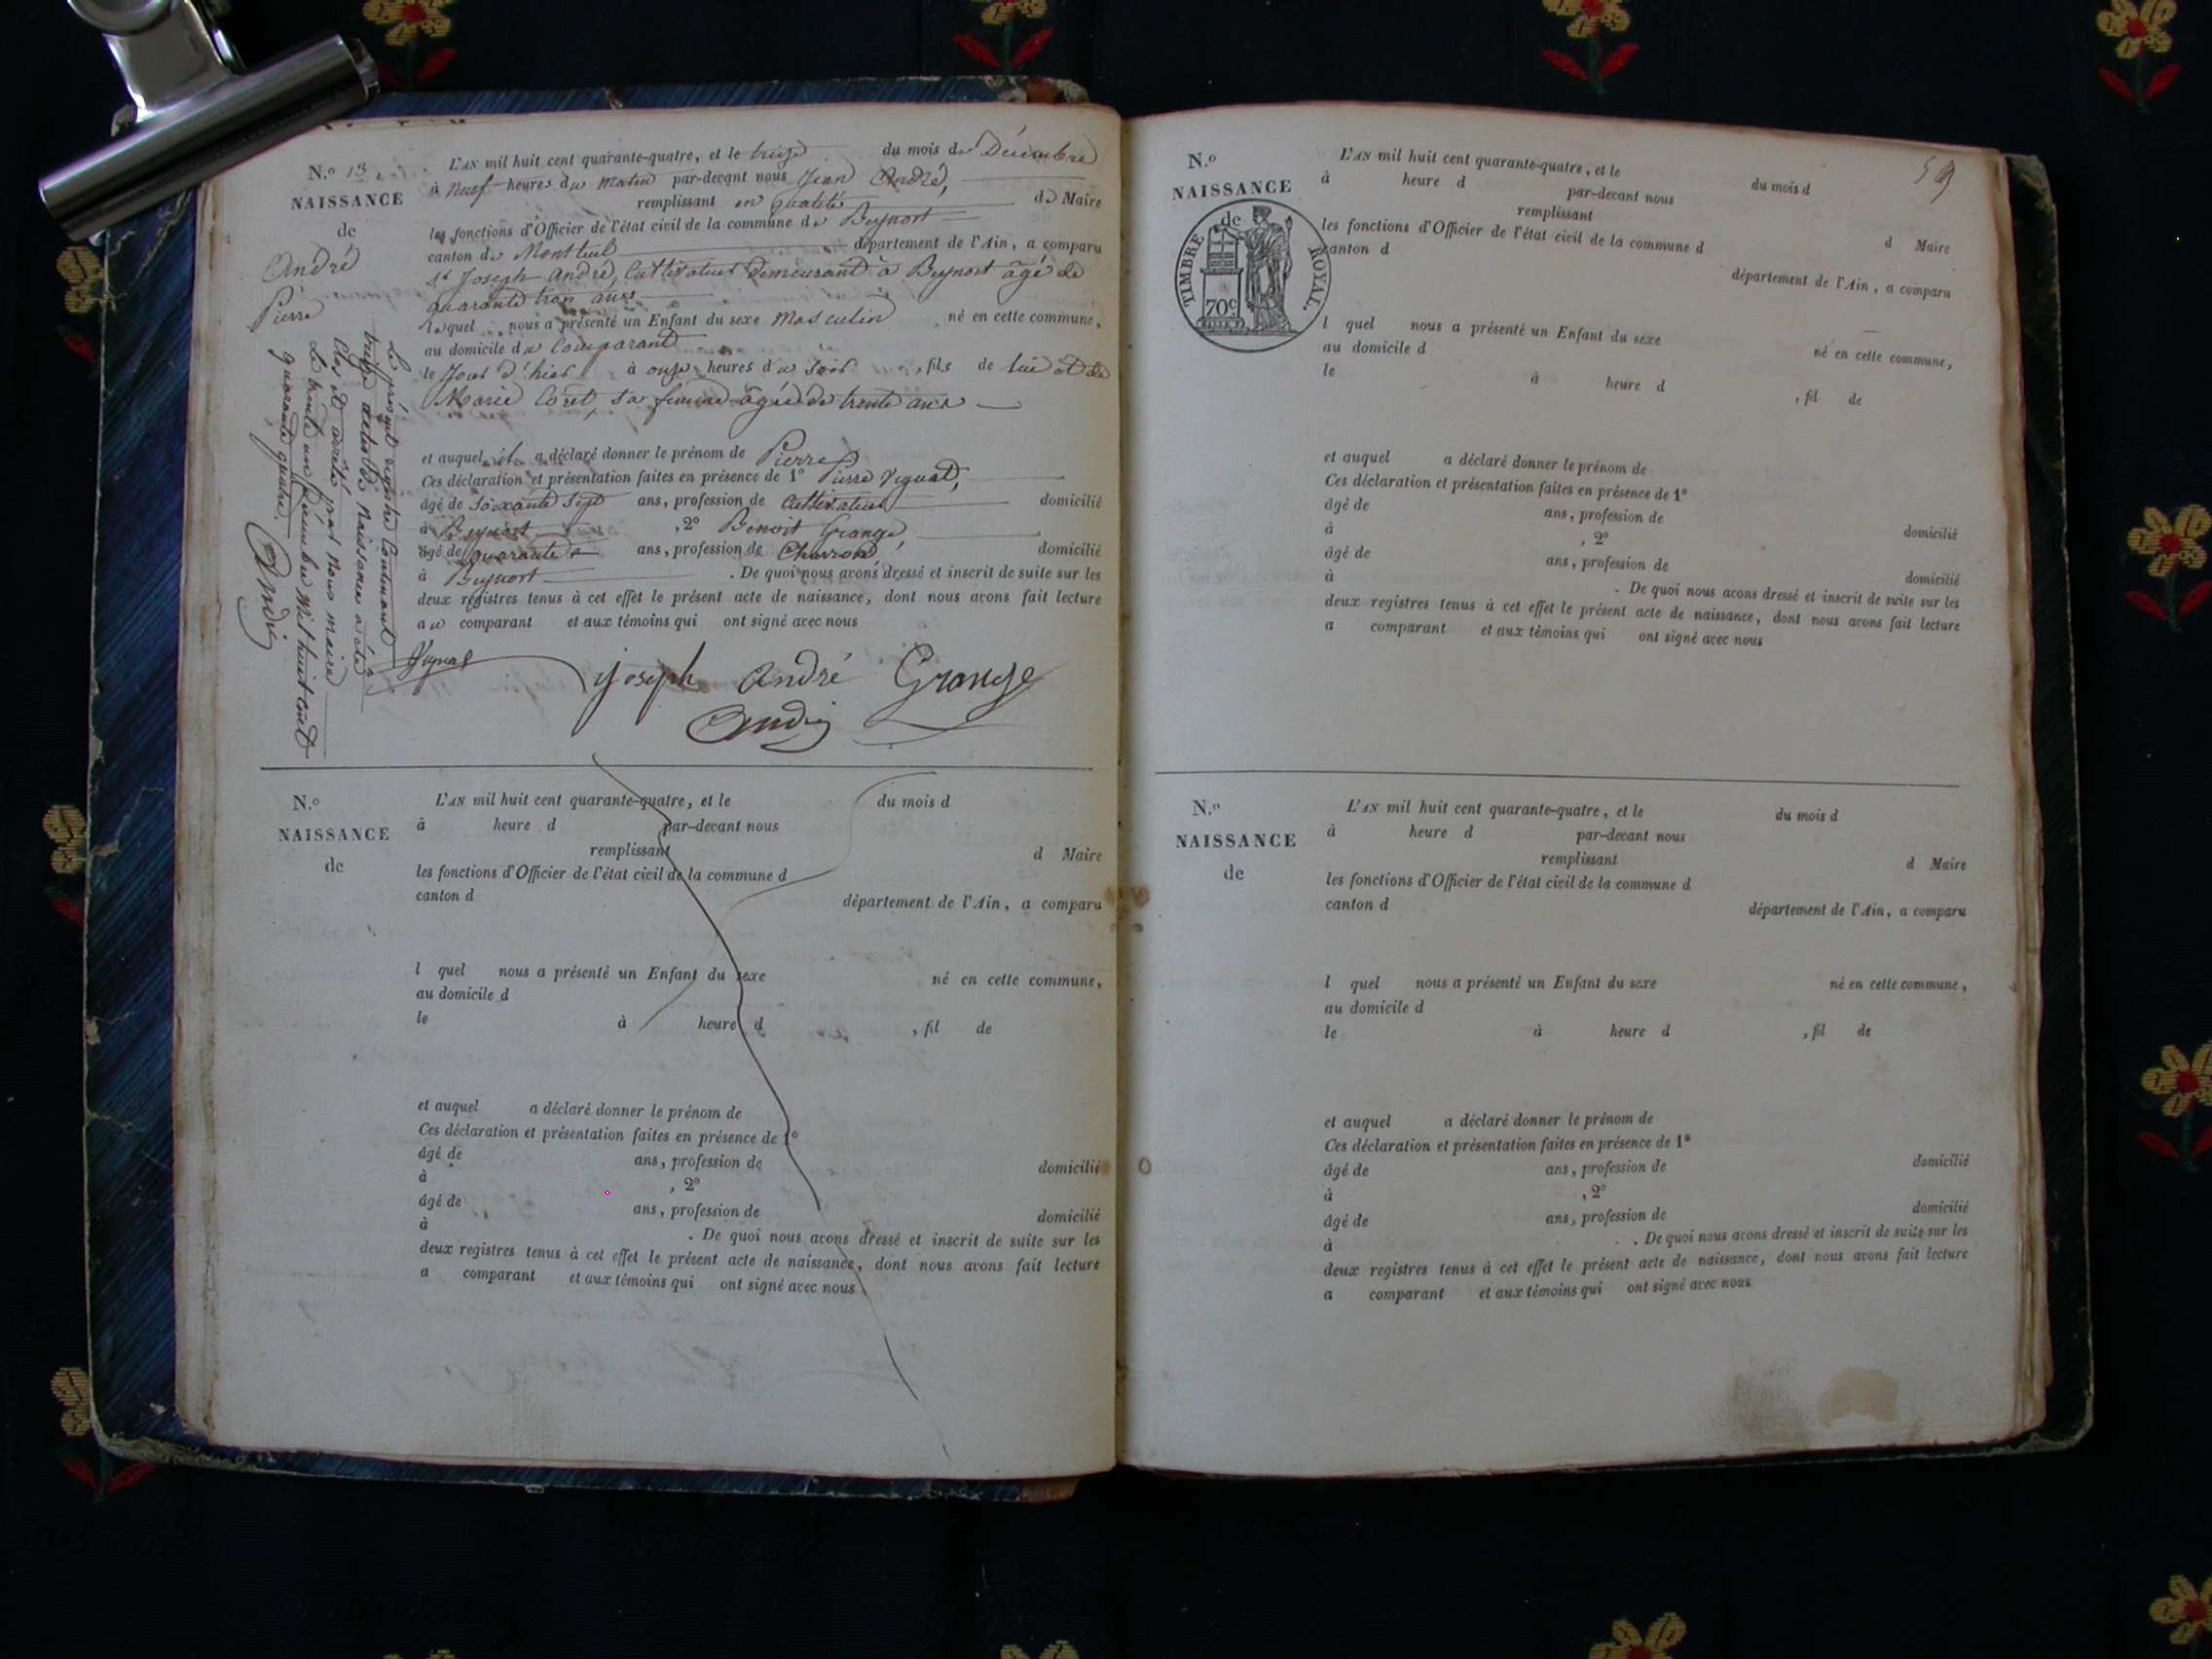 N.º 13.
NAISSANCE
de
André
Pierre
L'AN mil huit cent quarante-quatre, et le treize du mois de Décembre
à neuf heures du matin par-devant nous Jean André,
remplissant en qualité de Maire
les fonctions d'Officier de l'état civil de la commune de Beynost
canton de Montluel département de l'Ain, a comparu
st Joseph André, Cultivateur demeurant à Beynost âgé de
quarante trois ans
lequel nous a présenté un Enfant du sexe masculin né en cette commune,
au domicile du Comparant
le jour d'hier à onze heures du soir, fils de lui et de
Marie Coret, sa femme âgée de trente ans
et auquel il a déclaré donner le prénom de Pierre
Ces déclaration et présentation faites en présence de 1º Pierre Vignat,
âgé de soixante sept ans, profession de Cultivateur domicilié
à Beynost, 2º Benoit Grange
âgé de quarante ans, profession de Charron domicilié
à Beynost. De quoi nous avons dressé et inscrit de suite sur les
deux registres tenus à cet effet le présent acte de naissance, dont nous avons fait lecture
au comparant et aux témoins qui ont signé avec nous
Joseph André Grange
André
Le présent registre Contenant
treize actes de Naissances a été
Clos et arrêté par nous maire
Le trente un Décembre Mil huit cent
quarante quatre.
André
N.º
NAISSANCE
de
L'AN mil huit cent quarante-quatre, et le du mois d
à heure d par-devant nous
remplissant d Maire
les fonctions d'Officier de l'état civil de la commune d
canton d département de l'Ain, a comparu
l quel nous a présenté un Enfant du sexe né en cette commune,
au domicile d
le à heure d , fil de
et auquel a déclaré donner le prénom de
Ces déclaration et présentation faites en présence de 1º
âgé de ans, profession de domicilié
à , 2º
âgé de ans, profession de domicilié
à . De quoi nous avons dressé et inscrit de suite sur les
deux registres tenus à cet effet le présent acte de naissance, dont nous avons fait lecture
a comparant et aux témoins qui ont signé avec nous
59
N.º
NAISSANCE
de
TIMBRE ROYAL.
70c
L'AN mil huit cent quarante-quatre, et le du mois d
à heure d par-devant nous
remplissant d Maire
les fonctions d'Officier de l'état civil de la commune d
canton d département de l'Ain, a comparu
l quel nous a présenté un Enfant du sexe né en cette commune,
au domicile d
le à heure d , fil de
et auquel a déclaré donner le prénom de
Ces déclaration et présentation faites en présence de 1º
âgé de ans, profession de domicilié
à , 2º
âgé de ans, profession de domicilié
à . De quoi nous avons dressé et inscrit de suite sur les
deux registres tenus à cet effet le présent acte de naissance, dont nous avons fait lecture
a comparant et aux témoins qui ont signé avec nous
N.º
NAISSANCE
de
L'AN mil huit cent quarante-quatre, et le du mois d
à heure d par-devant nous
remplissant d Maire
les fonctions d'Officier de l'état civil de la commune d
canton d département de l'Ain, a comparu
l quel nous a présenté un Enfant du sexe né en cette commune,
au domicile d
le à heure d , fil de
et auquel a déclaré donner le prénom de
Ces déclaration et présentation faites en présence de 1º
âgé de ans, profession de domicilié
à , 2º
âgé de ans, profession de domicilié
à . De quoi nous avons dressé et inscrit de suite sur les
deux registres tenus à cet effet le présent acte de naissance, dont nous avons fait lecture
a comparant et aux témoins qui ont signé avec nous